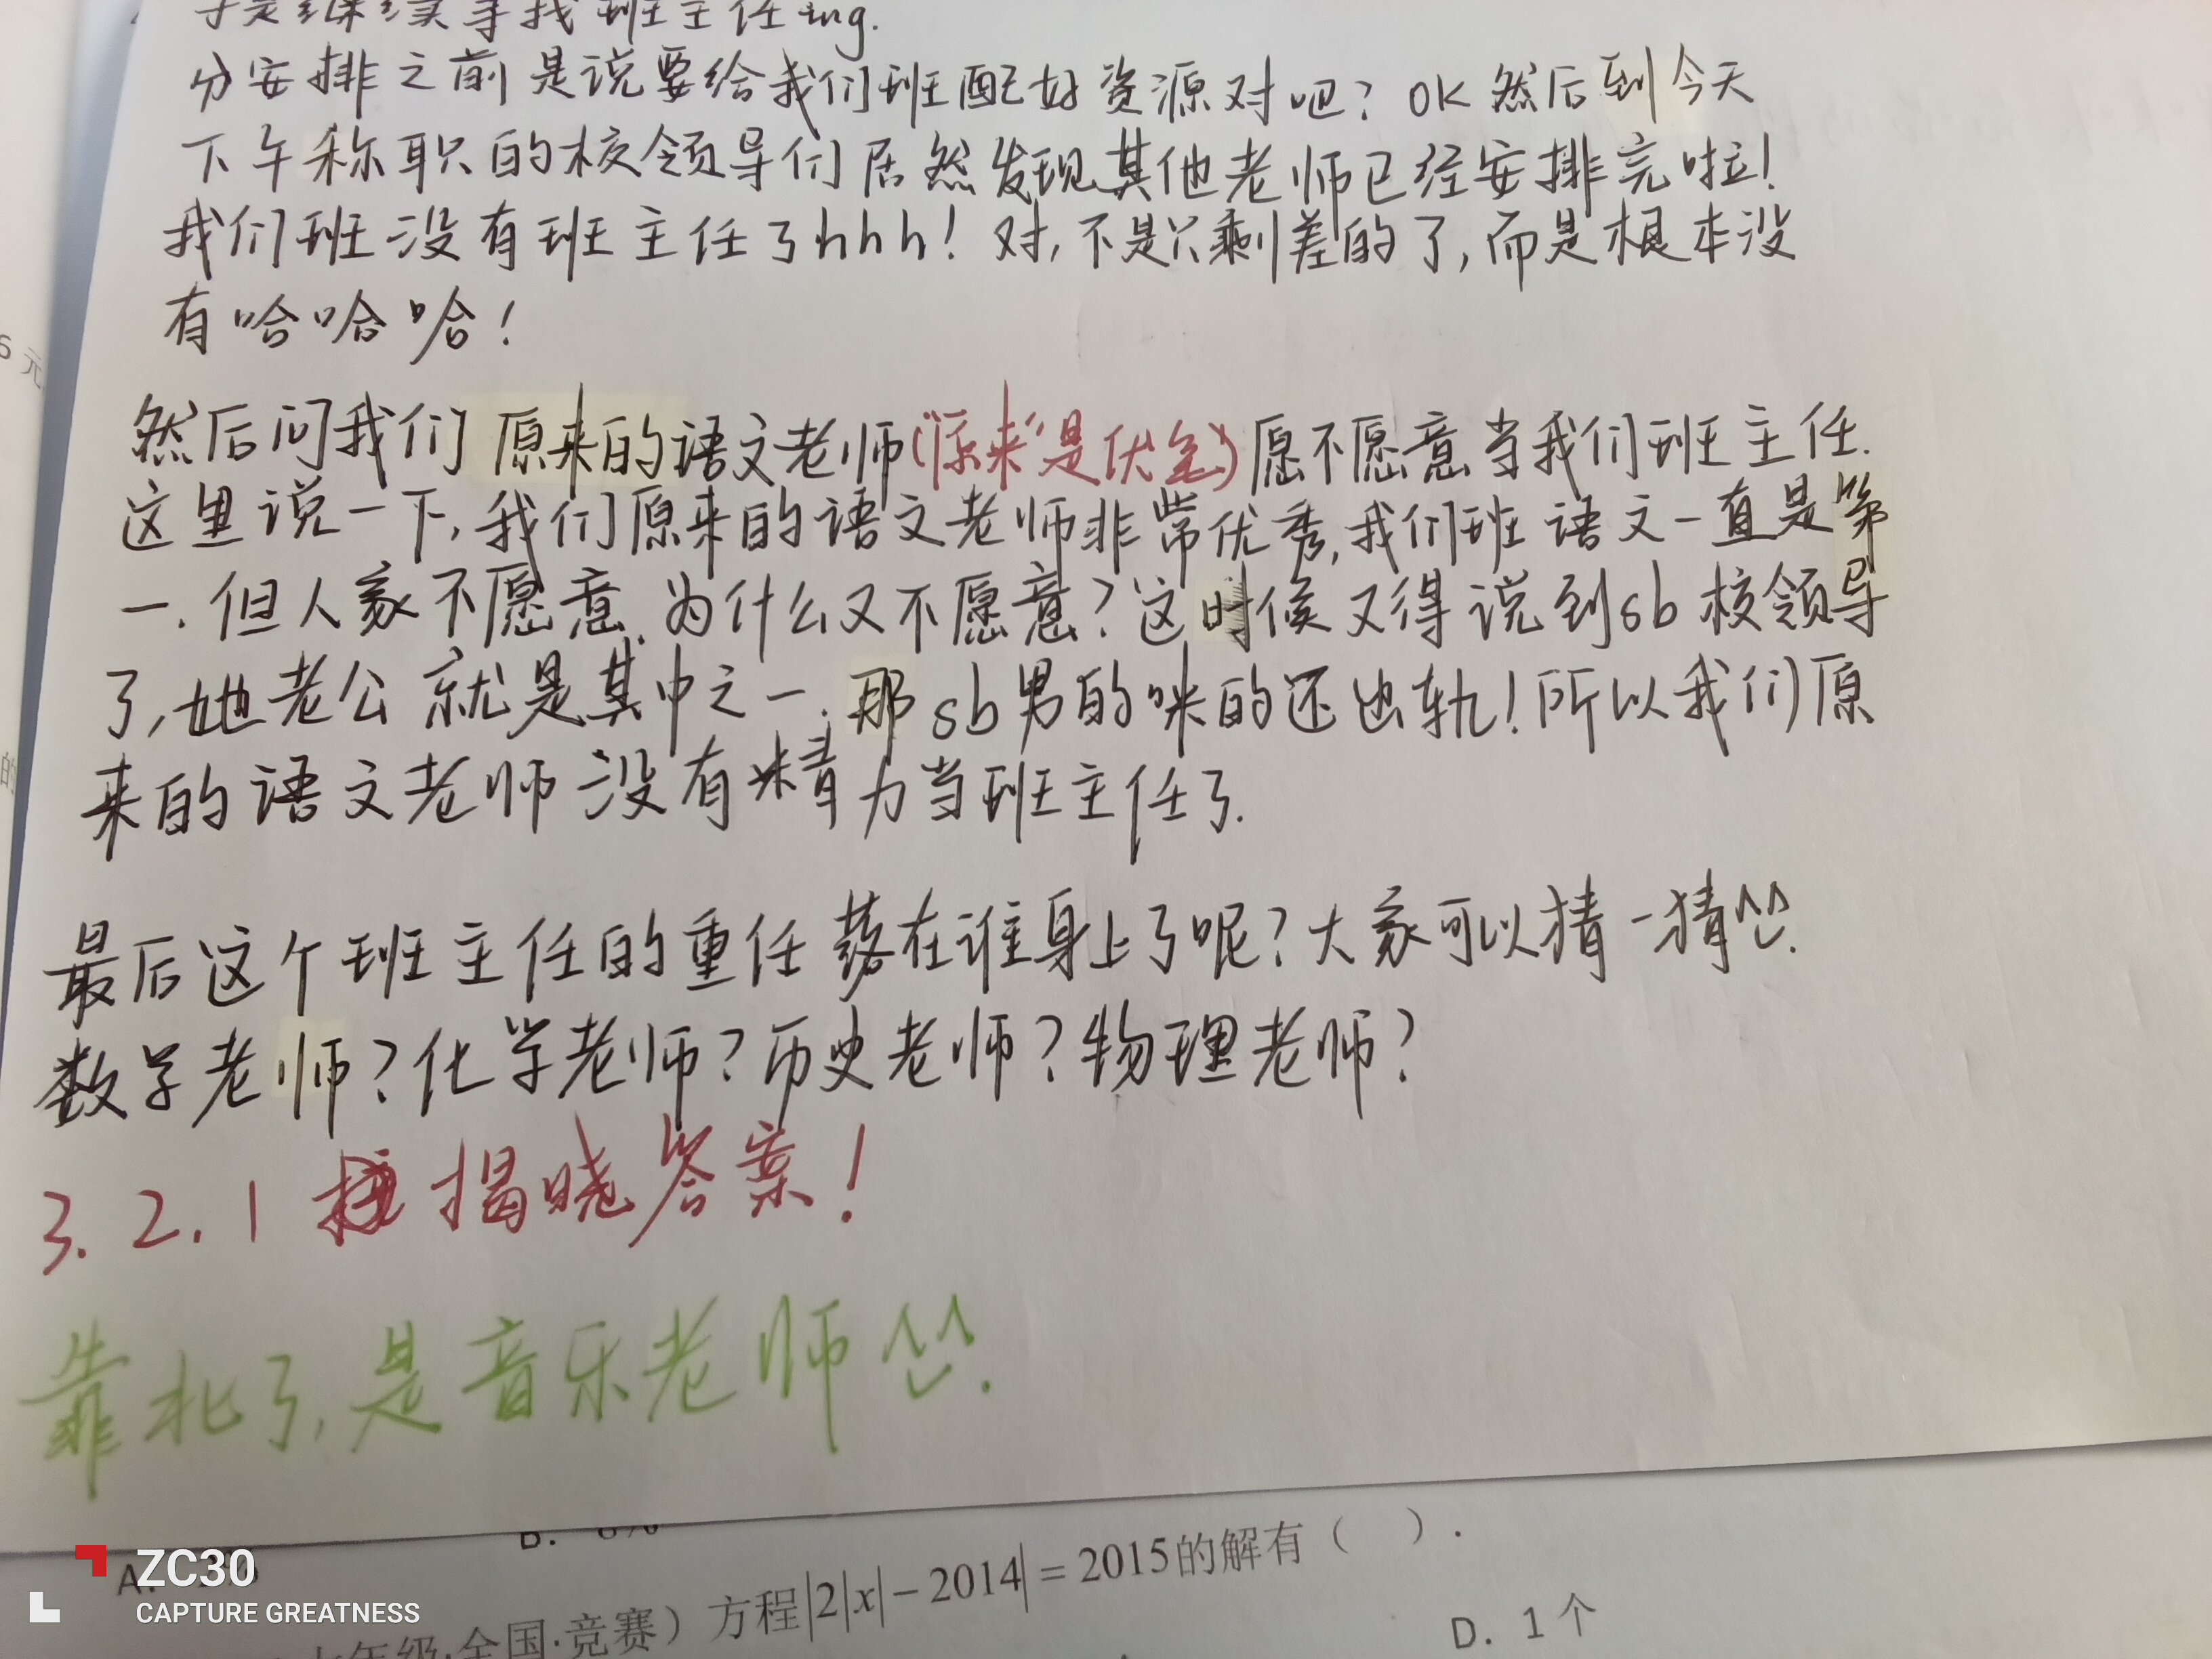 于是继续寻找班主任ing.
分安排之前是说要给我们班配好资源对吧？OK 然后到今天
下午称职的校领导们居然发现其他老师已经安排完啦！
我们班没有班主任了hhh！对，不是只剩差的了，而是根本没
有哈哈哈！
然后问我们原来的语文老师（“原来”是伏笔）愿不愿意当我们班主任.
这里说一下，我们原来的语文老师非常优秀，我们班语文一直是第
一. 但人家不愿意. 为什么又不愿意？这时候又得说到sb校领导
了，她老公就是其中之一. 那sb男的咪的还出轨！所以我们原
来的语文老师没有精力当班主任了.
最后这个班主任的重任落在谁身上了呢？大家可以猜一猜^^.
数学老师？化学老师？历史老师？物理老师？
3. 2. 1 揭晓答案！
靠北了，是音乐老师^^.
6元
的
B. 8%
A.
方程|2|x|－2014|＝2015的解有（ ）.
七年级·全国·竞赛）
D. 1个
ZC30
CAPTURE GREATNESS